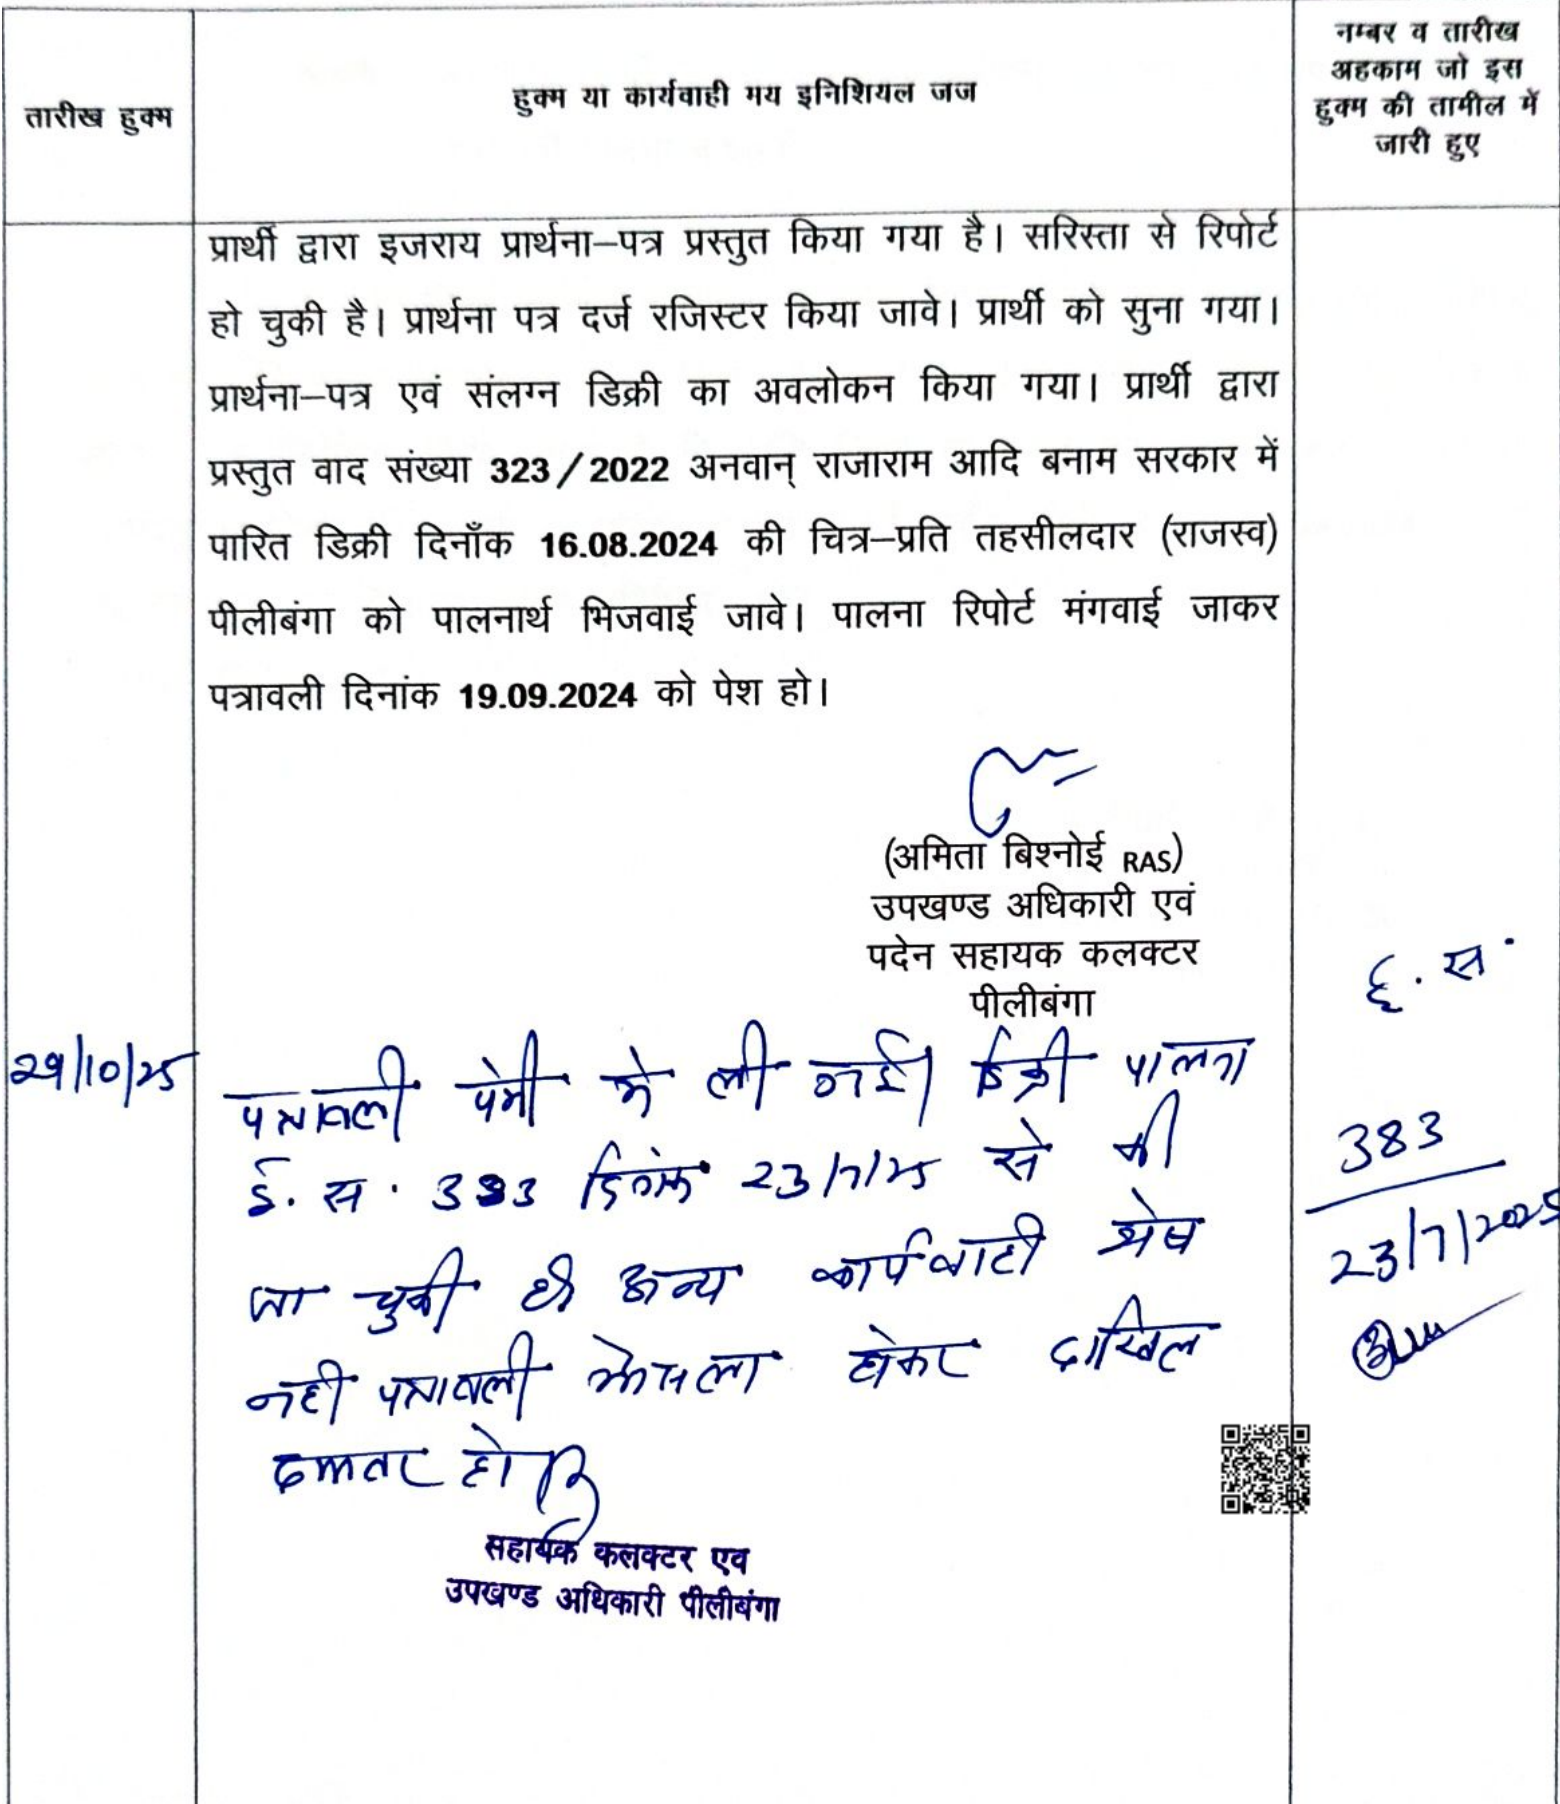 तारीख हुक्म
हुक्म या कार्यवाही मय इनिशियल जज
नम्बर व तारीख
अहकाम जो इस
हुक्म की तामील में
जारी हुए
प्रार्थी द्वारा इजराय प्रार्थना–पत्र प्रस्तुत किया गया है। सरिस्ता से रिपोर्ट
हो चुकी है। प्रार्थना पत्र दर्ज रजिस्टर किया जावे। प्रार्थी को सुना गया।
प्रार्थना–पत्र एवं संलग्न डिक्री का अवलोकन किया गया। प्रार्थी द्वारा
प्रस्तुत वाद संख्या 323/2022 अनवान् राजाराम आदि बनाम सरकार में
पारित डिक्री दिनाँक 16.08.2024 की चित्र–प्रति तहसीलदार (राजस्व)
पीलीबंगा को पालनार्थ भिजवाई जावे। पालना रिपोर्ट मंगवाई जाकर
पत्रावली दिनांक 19.09.2024 को पेश हो।
(अमिता बिश्नोई RAS)
उपखण्ड अधिकारी एवं
पदेन सहायक कलक्टर
पीलीबंगा
29/10/25
पत्रावली पेशी में ली गई। डिक्री पालना
ई. स. 383 दिनांक 23/7/25 से की
जा चुकी है। अन्य कार्यवाही शेष
नही पत्रावली फैसला होकर दाखिल
दफ्तर हो
ई. स.
383
23/7/2025
सहायक कलक्टर एव
उपखण्ड अधिकारी पीलीबंगा